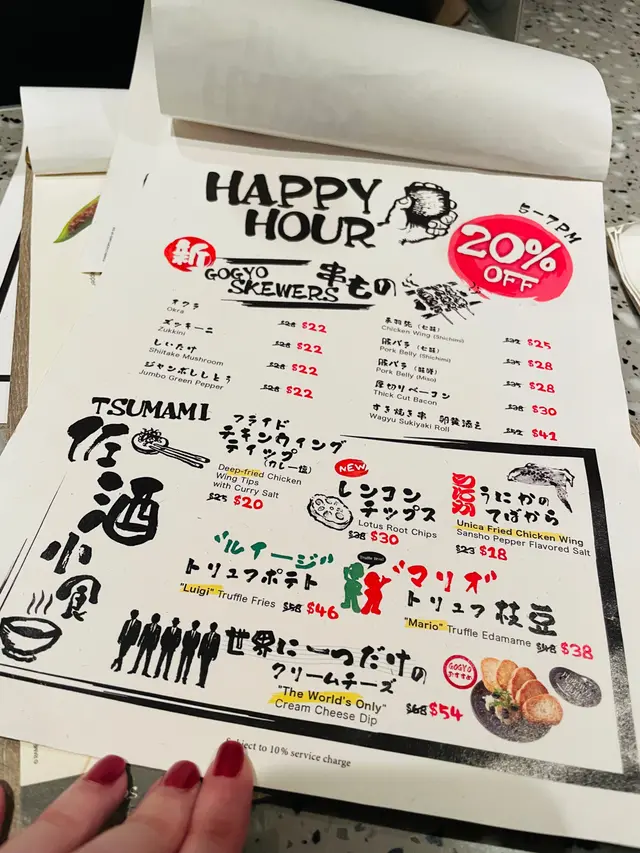 HAPPY
HOUR
5-7PM
20%
OFF
新
GOGYO
SKEWERS
串もの
オクラ
Okra
$28 $22
ズッキーニ
Zukkini
$28 $22
しいたけ
Shiitake Mushroom
$28 $22
ジャンボししとう
Jumbo Green Pepper
$28 $22
手羽先 (七味)
Chicken Wing (Shichimi)
$32 $25
豚バラ (七味)
Pork Belly (Shichimi)
$28
豚バラ (味噌)
Pork Belly (Miso)
$28
厚切りベーコン
Thick Cut Bacon
$38 $30
すき焼き串 卵黄添え
Wagyu Sukiyaki Roll
$52 $42
TSUMAMI
佐酒小食
フライド
チキンウイング
ティップ
(カレー塩)
Deep-fried Chicken
Wing Tips
with Curry Salt
$25 $20
NEW
レンコン
チップス
Lotus Root Chips
$38 $30
うにかの
てばから
Unica Fried Chicken Wing
Sansho Pepper Flavored Salt
$23 $18
"ルイージ"
トリュフポテト
"Luigi" Truffle Fries $58 $46
"マリオ"
トリュフ枝豆
"Mario" Truffle Edamame $48 $38
世界に一つだけの
クリームチーズ
"The World's Only"
Cream Cheese Dip
$68 $54
GOGYO
おすすめ
Subject to 10% service charge